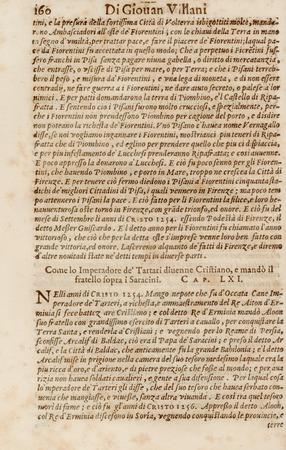 160 Di Giouan Villani
tini, e la presura della fortissima Città di Volterra isbigottiti molto, manda-
rono Ambasciadori all'oste de' Fiorentini, con le chiaui della Terra in mano
in segno d'vmiltà, per trattar pace, e fare il piacere de' Fiorentini; laqual pa-
ce da Fiorentini fu accettata in questo modo; Che a perpetuo i Fioretini fus-
sero franchi in Pisa sanza pagare niuna gabella, o diritto di mercatanzia,
che entrasse, o vscisse di Pisa per mare, o per terra; e che i Pisani terreb-
bero il peso, e misura de' Fiorentini, e vna lega di moneta; e di non essere
contradj, ne fare guerra a i Fiorentini, ne dare aiuto secreto, o palese a lor
nimici. E per patti domandarono la terra di Piombino, o il Castello di Ripa-
fratta. E
che i Fiorentini non domandassero Piombino per cagione del porto, e disidre
non poteano la richesta de' Fiorentini. V'nò Pisano c'hauea nome Vernagallo
disse, se noi vogliamo ingannare i Fiorentini, mostrianci più tenere di Ripa-
fratta che di Piombino, ed eglino per prendere quello che più ci dispiaccia,
e per più
E poco appresso la deuarono a' Lucchesi. E ciò fu poco senno per gli Fioren-
tini, che hauendo Piombino, e porto in Mare, troppo ne cresceua la Città di
Firenze. E per tenere ciò fermo diedono i Pisani a' Fiorentini cinquanta sta-
dichi de' migliori Cittadini di Pisa, i quali vennero in Firenze; ma poco tem-
po attennero i Pisani la pace. E ciò fatto per li Fiorentini la felice, e loro be-
nauenturosa oste tornò in Firenze, con grāde trionfo, ed onore. E ciò fu del
mese di Settembre li anni di CRISTO 1254. essendo Podestà di Firenze, il
detto Messer Guiscardo. E i detto anno i Fiorentini lo chiamarono l'anno
vittorioso, che ciò che per la detta oste s'imprese venne loro ben fatto con
grande vittoria, ed onore. Lasceremo alquanto de' fatti di Firenze, e diremo
d'altre nouitadi state ne' detti tempi in diuerse parti.
Come lo Imperadore de' Tartari diuenne Cristiano, e mandò il
fratello sopra i Saracini. CAP. LXI.
NElli anni di CRISTO 1254. Mango nepote che fu d'Occata Cane Im-
peradore de' Tartari, a richiesta, e ammaestramento del Re Aiton d'Er-
minia si fece battezzare Cristiano; e col detto Re d'Erminia mandò Aloon
suo fratello con grandissimo esercito di Tartari a cauallo, per conquistare la
Terra Santa, e renderla a' Cristiani; e vegnendo per lo Reame di Persia,
sconfisse Arcalif di Baldac, ciò era il Papa de' Saracini; e preso il detto Ar-
calif, e la Città di Baldac, che anticamente fu la grande Babilonia; e'l detto
Arcalif misse in prigione nella camera del suo tesoro
più ricca d'oro, e d'ariento, e di pietre preziosé che fosse al mondo; e per aua-
rizia non hauea soldati cauallieri, e gente a sua difensione. Per laqual cosa
lo'mperadore de' Tartari gli disse, che del suo tesoro che hauea serbato con-
uenia che mangiasse, e viuesse, sanza altra viuanda. E così tra quel tesoro
morì di fame; e ciò fu gli anni di CRISTO 1256. Appresso il detto Aloon,
col Re d'Erminia discesono in Soria, vegnendo conquistando le prouincie, e
terre